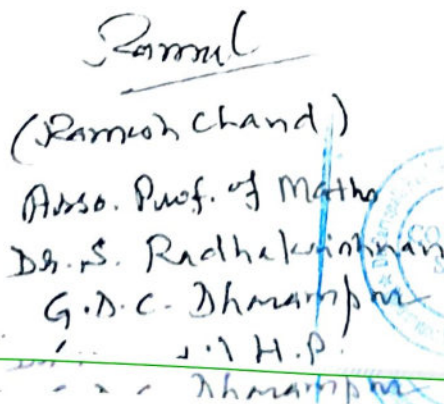 (Ramesh Chand)
Asso. Prof. of Maths
Dr. S. Radhakrishnan
G.D.C. Dharampur
H.P.
Dharampur